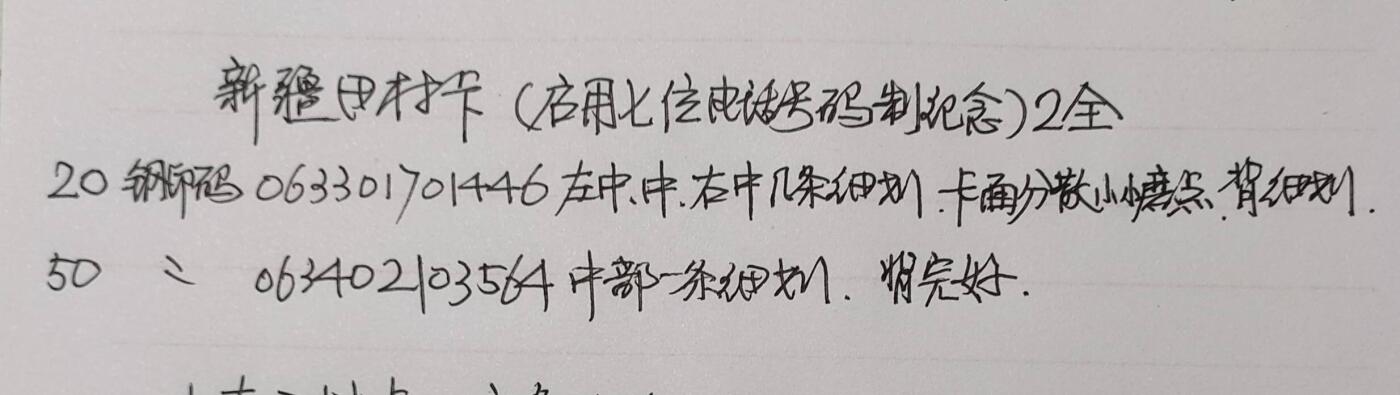 新疆田村卡(启用七位电话号码制纪念)2全
20 钢印码 063301701446 左中、中、右中几条细划.卡面分散小小磨点.背细划.
50 〃 063402103564 中部一条细划. 背完好.